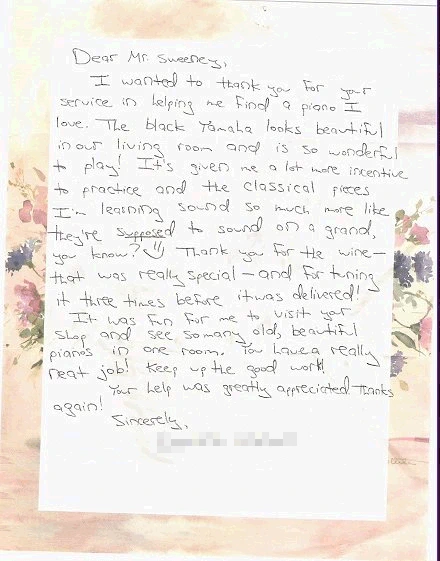 Dear Mr. Sweeney,
I wanted to thank you for your
service in helping me find a piano I
love. The black Yamaha looks beautiful
in our living room and is so wonderful
to play! It's given me a lot more incentive
to practice and the classical pieces
I'm learning sound so much more like
they're supposed to sound on a grand,
you know? Thank you for the wine—
that was really special—and for tuning
it three times before it was delivered!
It was fun for me to visit your
shop and see so many old, beautiful
pianos in one room. You have a really
neat job! Keep up the good work!
Your help was greatly appreciated—thanks
again!
Sincerely,